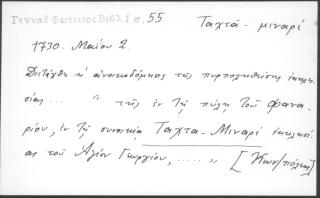 Γενναδ Φωτιειος Βιβλ 1 σ. 55
Ταχτᾶ - μιναρέ
1730. Μαΐου 2.
Διετάχθη ἡ ἀνοικοδόμησις τῆς πυρποληθείσης ἐκκλη-
σίας ... " τῆς ἐν τῇ πύλῃ τοῦ Φανα-
ρίου, ἐν τῇ συνοικίᾳ Ταχτα-Μιναρέ ἐκκλησί-
ας τοῦ Ἁγίου Γεωργίου, ..... " [Κων/πόλεως]